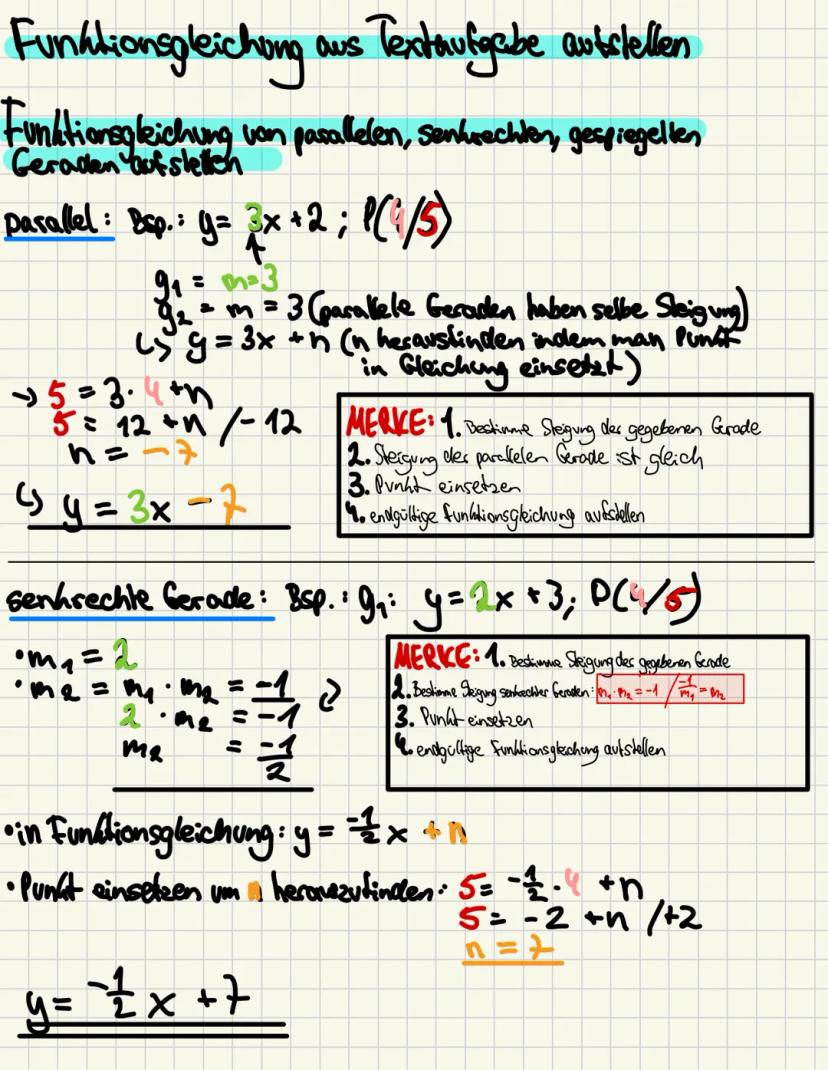 Funktionsgleichung aus Textaufgabe aufstellen
Funktionsgleichung von parallelen, senkrechten, gespiegelten
Geraden aufstellen
parallel: Bsp.: y = 3x + 2 ; P(4/5)
↑
g₁ = m = 3
g₂ = m = 3 (parallele Geraden haben selbe Steigung)
↳ y = 3x + n (n herausfinden indem man Punkt
in Gleichung einsetzt)
→ 5 = 3 · 4 + n
5 = 12 + n / -12
n = -7
↳ y = 3x - 7
MERKE: 1. Bestimme Steigung der gegebenen Gerade
2. Steigung der parallelen Gerade ist gleich
3. Punkt einsetzen
4. endgültige Funktionsgleichung aufstellen
senkrechte Gerade: Bsp.: g₁: y = 2x + 3; P(4/5)
• m₁ = 2
• m₂ = m₁ · m₂ = -1
2 · m₂ = -1
m₂ = -1/2
MERKE: 1. Bestimme Steigung der gegebenen Gerade
2. Bestimme Steigung senkrechter Geraden: m₁ · m₂ = -1 / -1/m₁ = m₂
3. Punkt einsetzen
4. endgültige Funktionsgleichung aufstellen
• in Funktionsgleichung: y = -1/2 x + n
• Punkt einsetzen um n herauszufinden: 5 = -1/2 · 4 + n
5 = -2 + n / +2
n = 7
y = -1/2 x + 7